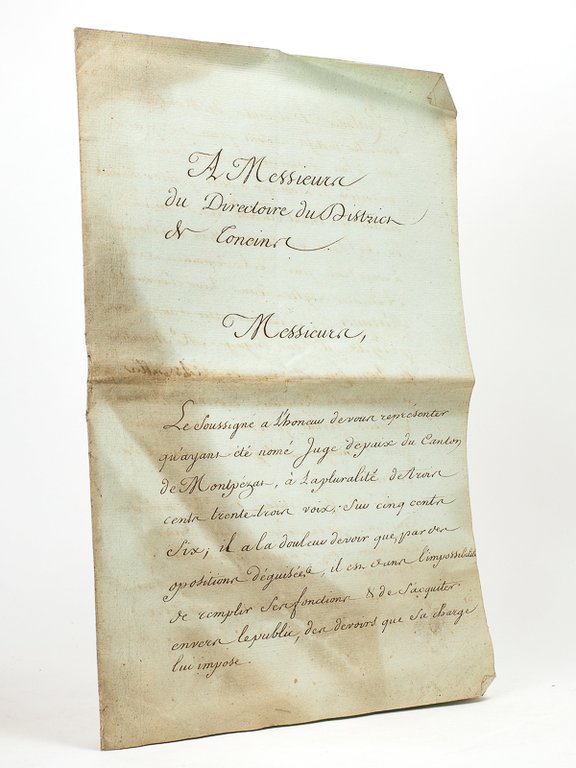 A Messieurs
du Directoire du District
de Toneins
Messieurs,
Le Soussigné a l'honeur de vous représenter
qu'ayant été nomé Juge de paix du Canton
de Montpezat, à la pluralité de trois
cents trente trois voix, Sur cinq cents
Six; il a la douleur de voir que, par des
opositions déguisées, il est dans l'impossibilité
de remplir Ses fonctions & de S'acquiter
envers le public, des devoirs que Sa charge
lui impose.